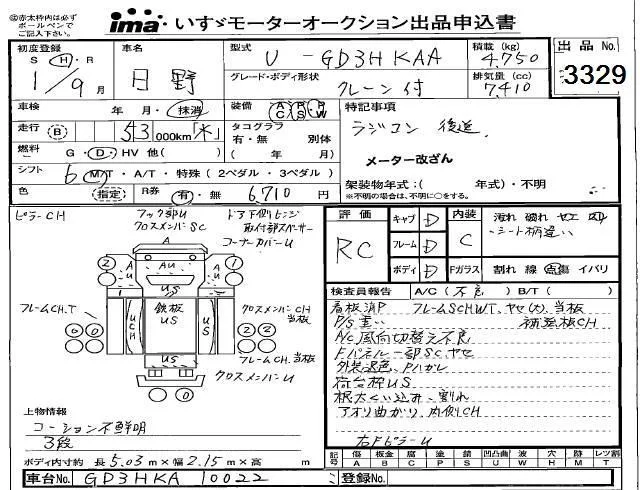 ◎赤太枠内は必ず
ボールペンで
ご記入下さい。
ima いすゞモーターオークション出品申込書
初度登録 車名 型式 積載 (kg) 出品 No.
S H・R 日野 U-GD3HKAA 4,750
1/9月 グレード・ボディ形状 クレーン付 排気量 (cc) 7410 3329
車検 年・月・抹消 装備 A C P S P W 特記事項
走行 B 53 000km「米」 タコグラフ 有・無 別体 ラジコン 後送.
燃料 G・D・HV 他( ) ( 年 月) メーター改ざん
シフト 6 M/T・A/T・特殊(2ペダル・3ペダル)
色 指定 R券 有・無 6,710 円 架装物年式:( 年式)・不明
※不明の場合は、不明に○をする。
ピラーCH フック部U ドア下側ヒンジ
クロスメンバーSC 取付部スペーサー
コーナーカバーU
評価 RC キャブ D 内装 C 汚れ 破れ ヤエ 凹
フレーム D シート柄違い
ボディ D Fガラス 割れ 線 点傷 イバリ
A
2 A U AU A U 1
1 US
フレームCH.T 鉄板 US クロスメンバーCH 当板
0 0 UCH US 2 2
US フレームCH.当板
クロスメンバーU
検査員報告 A/C(不良) B/T( )
看板消P フレームSCWT、ヤセ(大)、当板
P/S重い 補強板CH
A/C風向切替え不良
Fパネル一部SC.ヤセ
外装退色、Pハガレ
荷台根US
根太くい込み、割れ
アオリ曲がり、内側CH
右FピラーU
上物情報
コーション不鮮明
3段
ボディ内寸約 長5.03m×幅2.15m×高 m
記号 傷 A 板金 B 腐 C 塗 P 錆 S 凹凸曲 U 波 W 穴 H 跡 M レツ割 T
車台No. GD3HKA 10022 登録No.